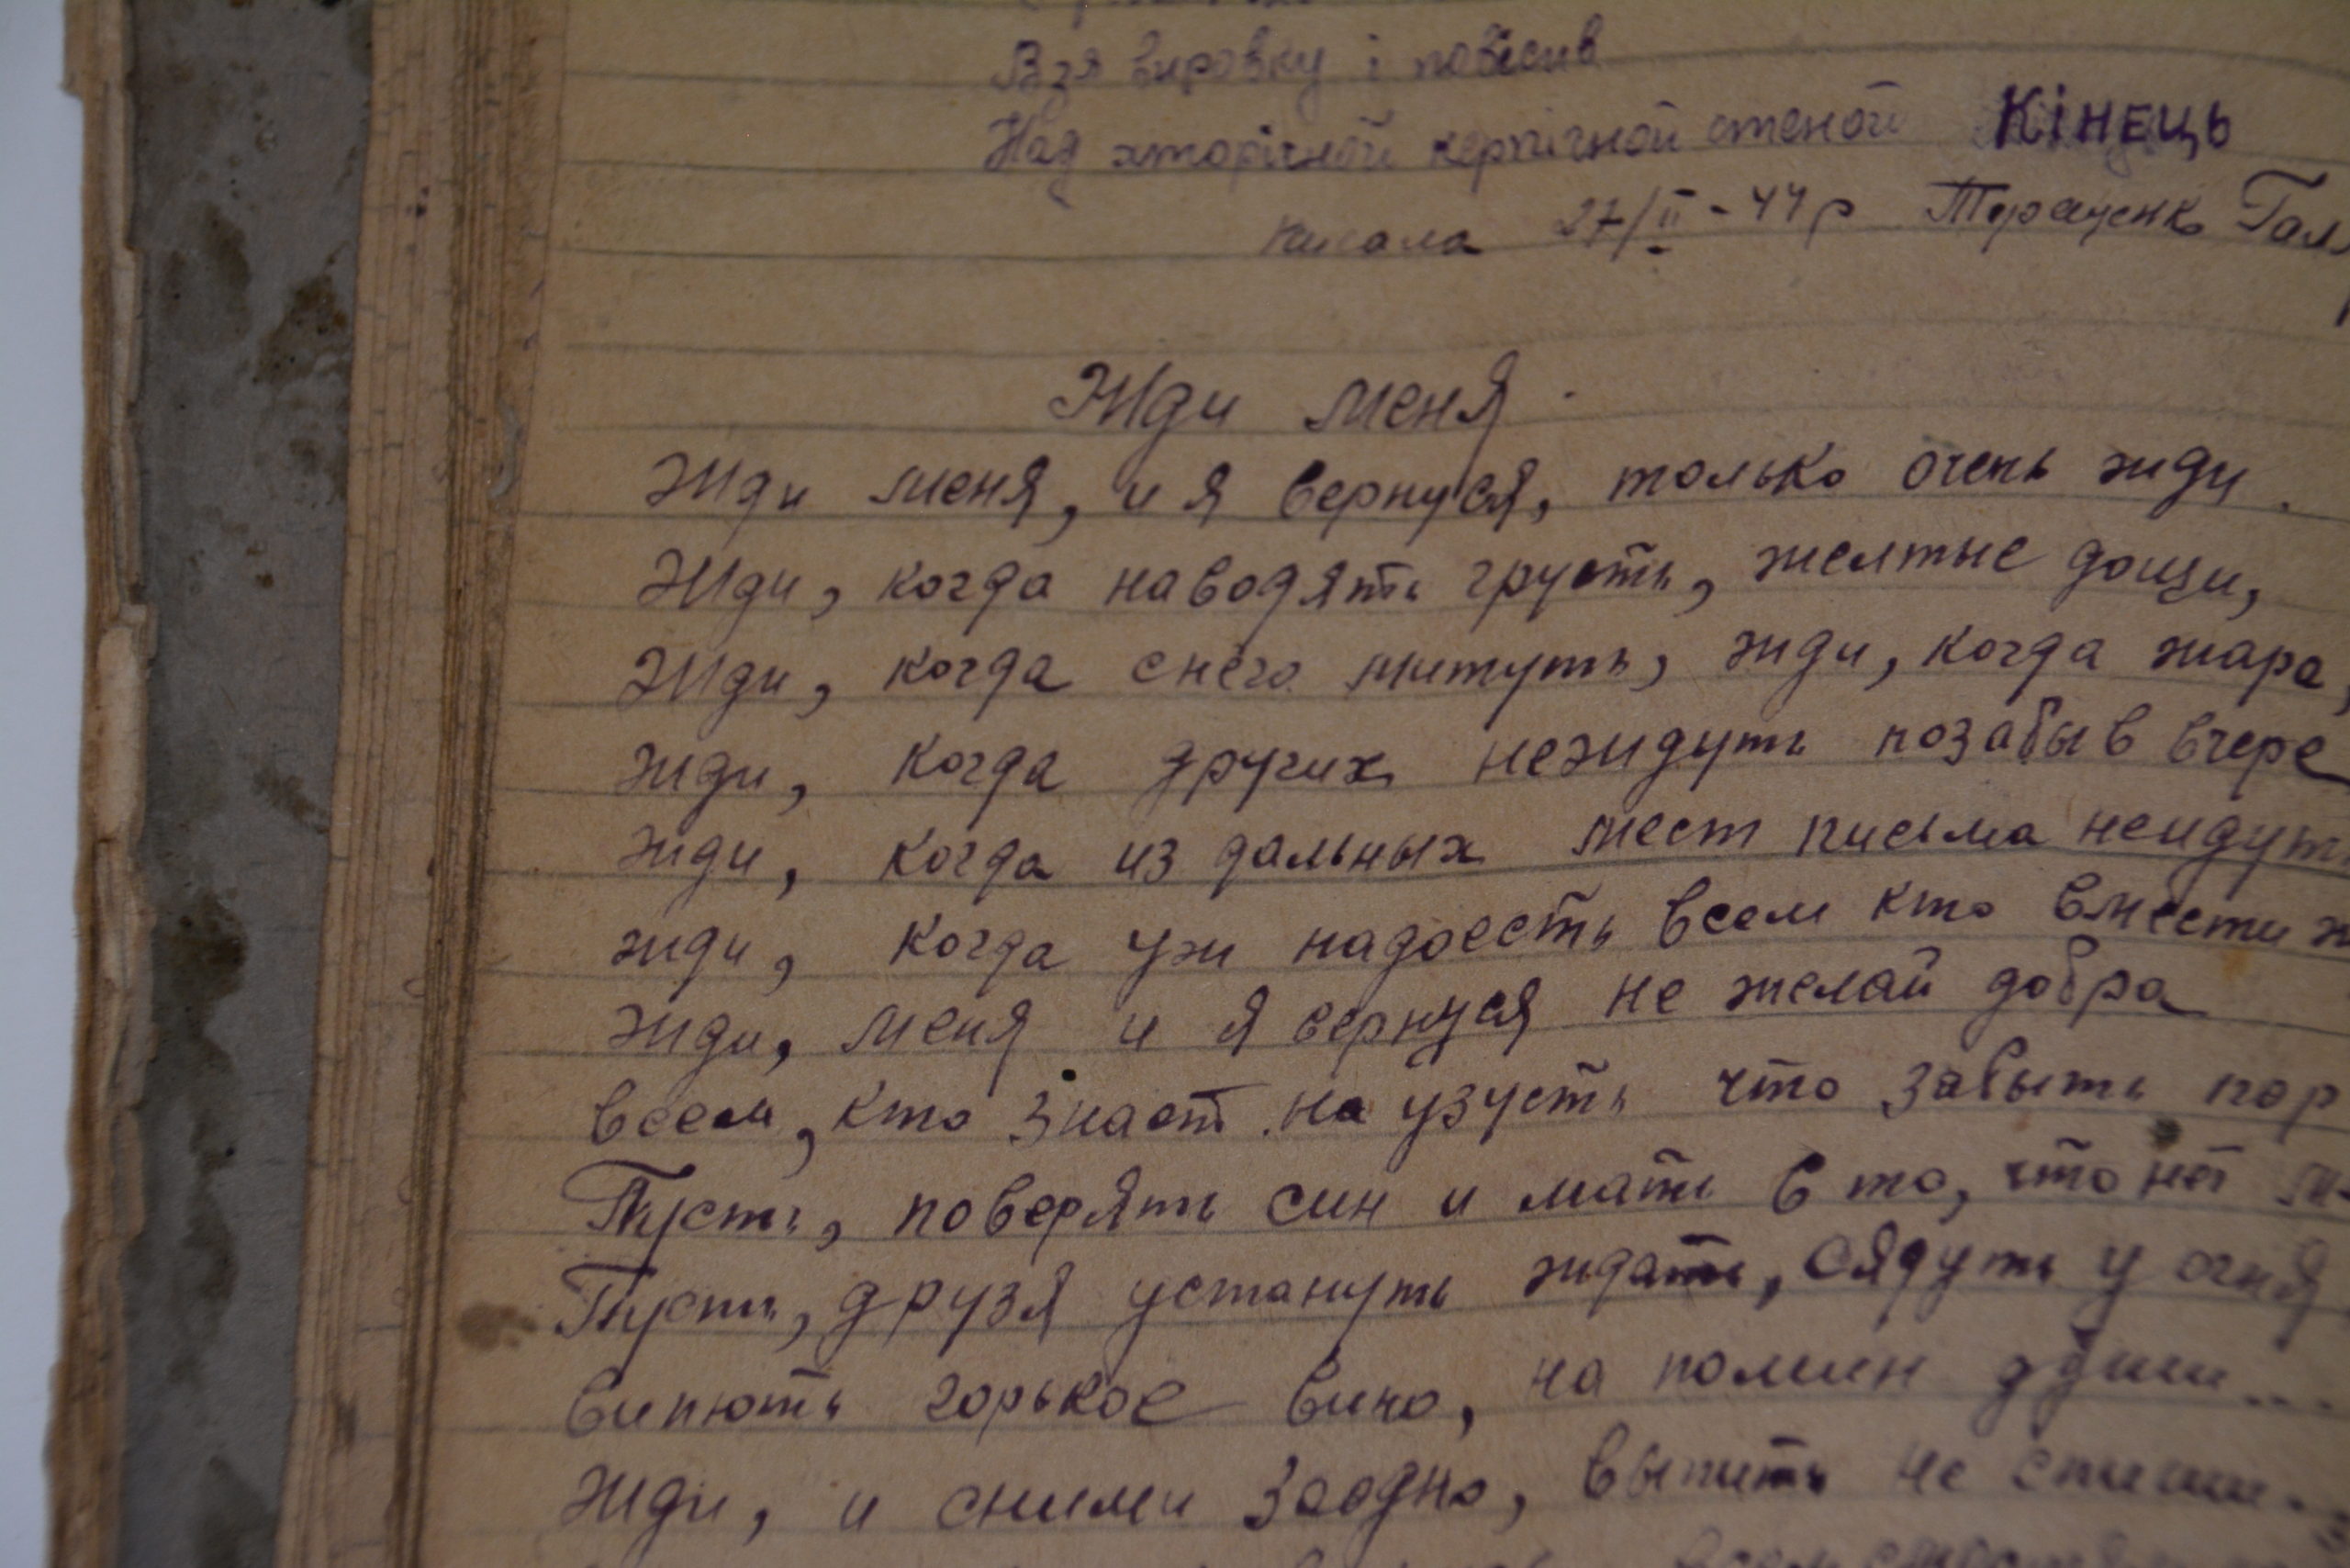 Взя вировку і повісив
Над хторічной керпічной стеной КІНЕЦЬ
писала 27/II - 44 р Терещенко Гал
Жди меня
Жди меня, и я вернуся, только очень жди.
Жди, когда наводять грусть, желтые дощи,
Жди, когда снего митуть, жди, когда жара,
жди, когда других нежидуть позабыв вчера
жди, когда из дальных мест письма неидут
жди, когда уж надоесть всем кто вмести ж
жди, меня и я вернуся не желай добра
всем, кто знает на узусть что забыть пор
Пусть, поверять син и мать в то, что нет м
Пусть, друзя устануть ждать, сядуть у огня
випють горькое вино, на помин души...
Жди, и сними заодно, выпить не спиши..